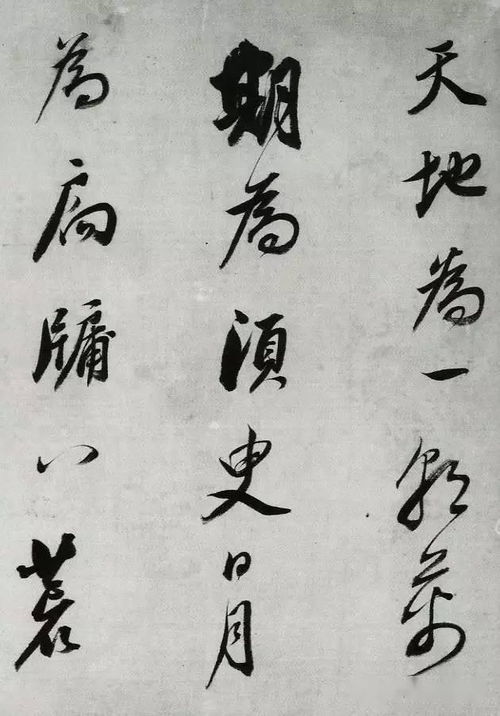 天地為一朝萬
期為湏臾日月
為扃牖八荒